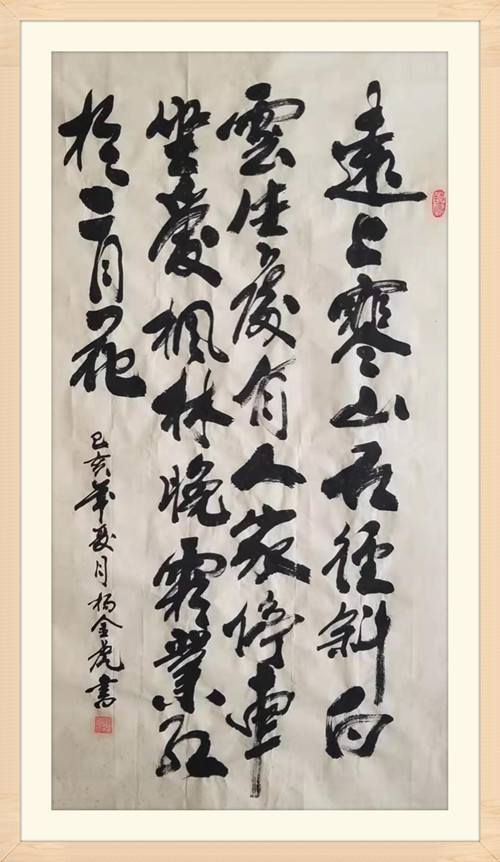 遠上寒山石徑斜白
雲生處有人家停車
坐愛楓林晚霜葉紅
於二月花
己亥年夏月楊金虎書